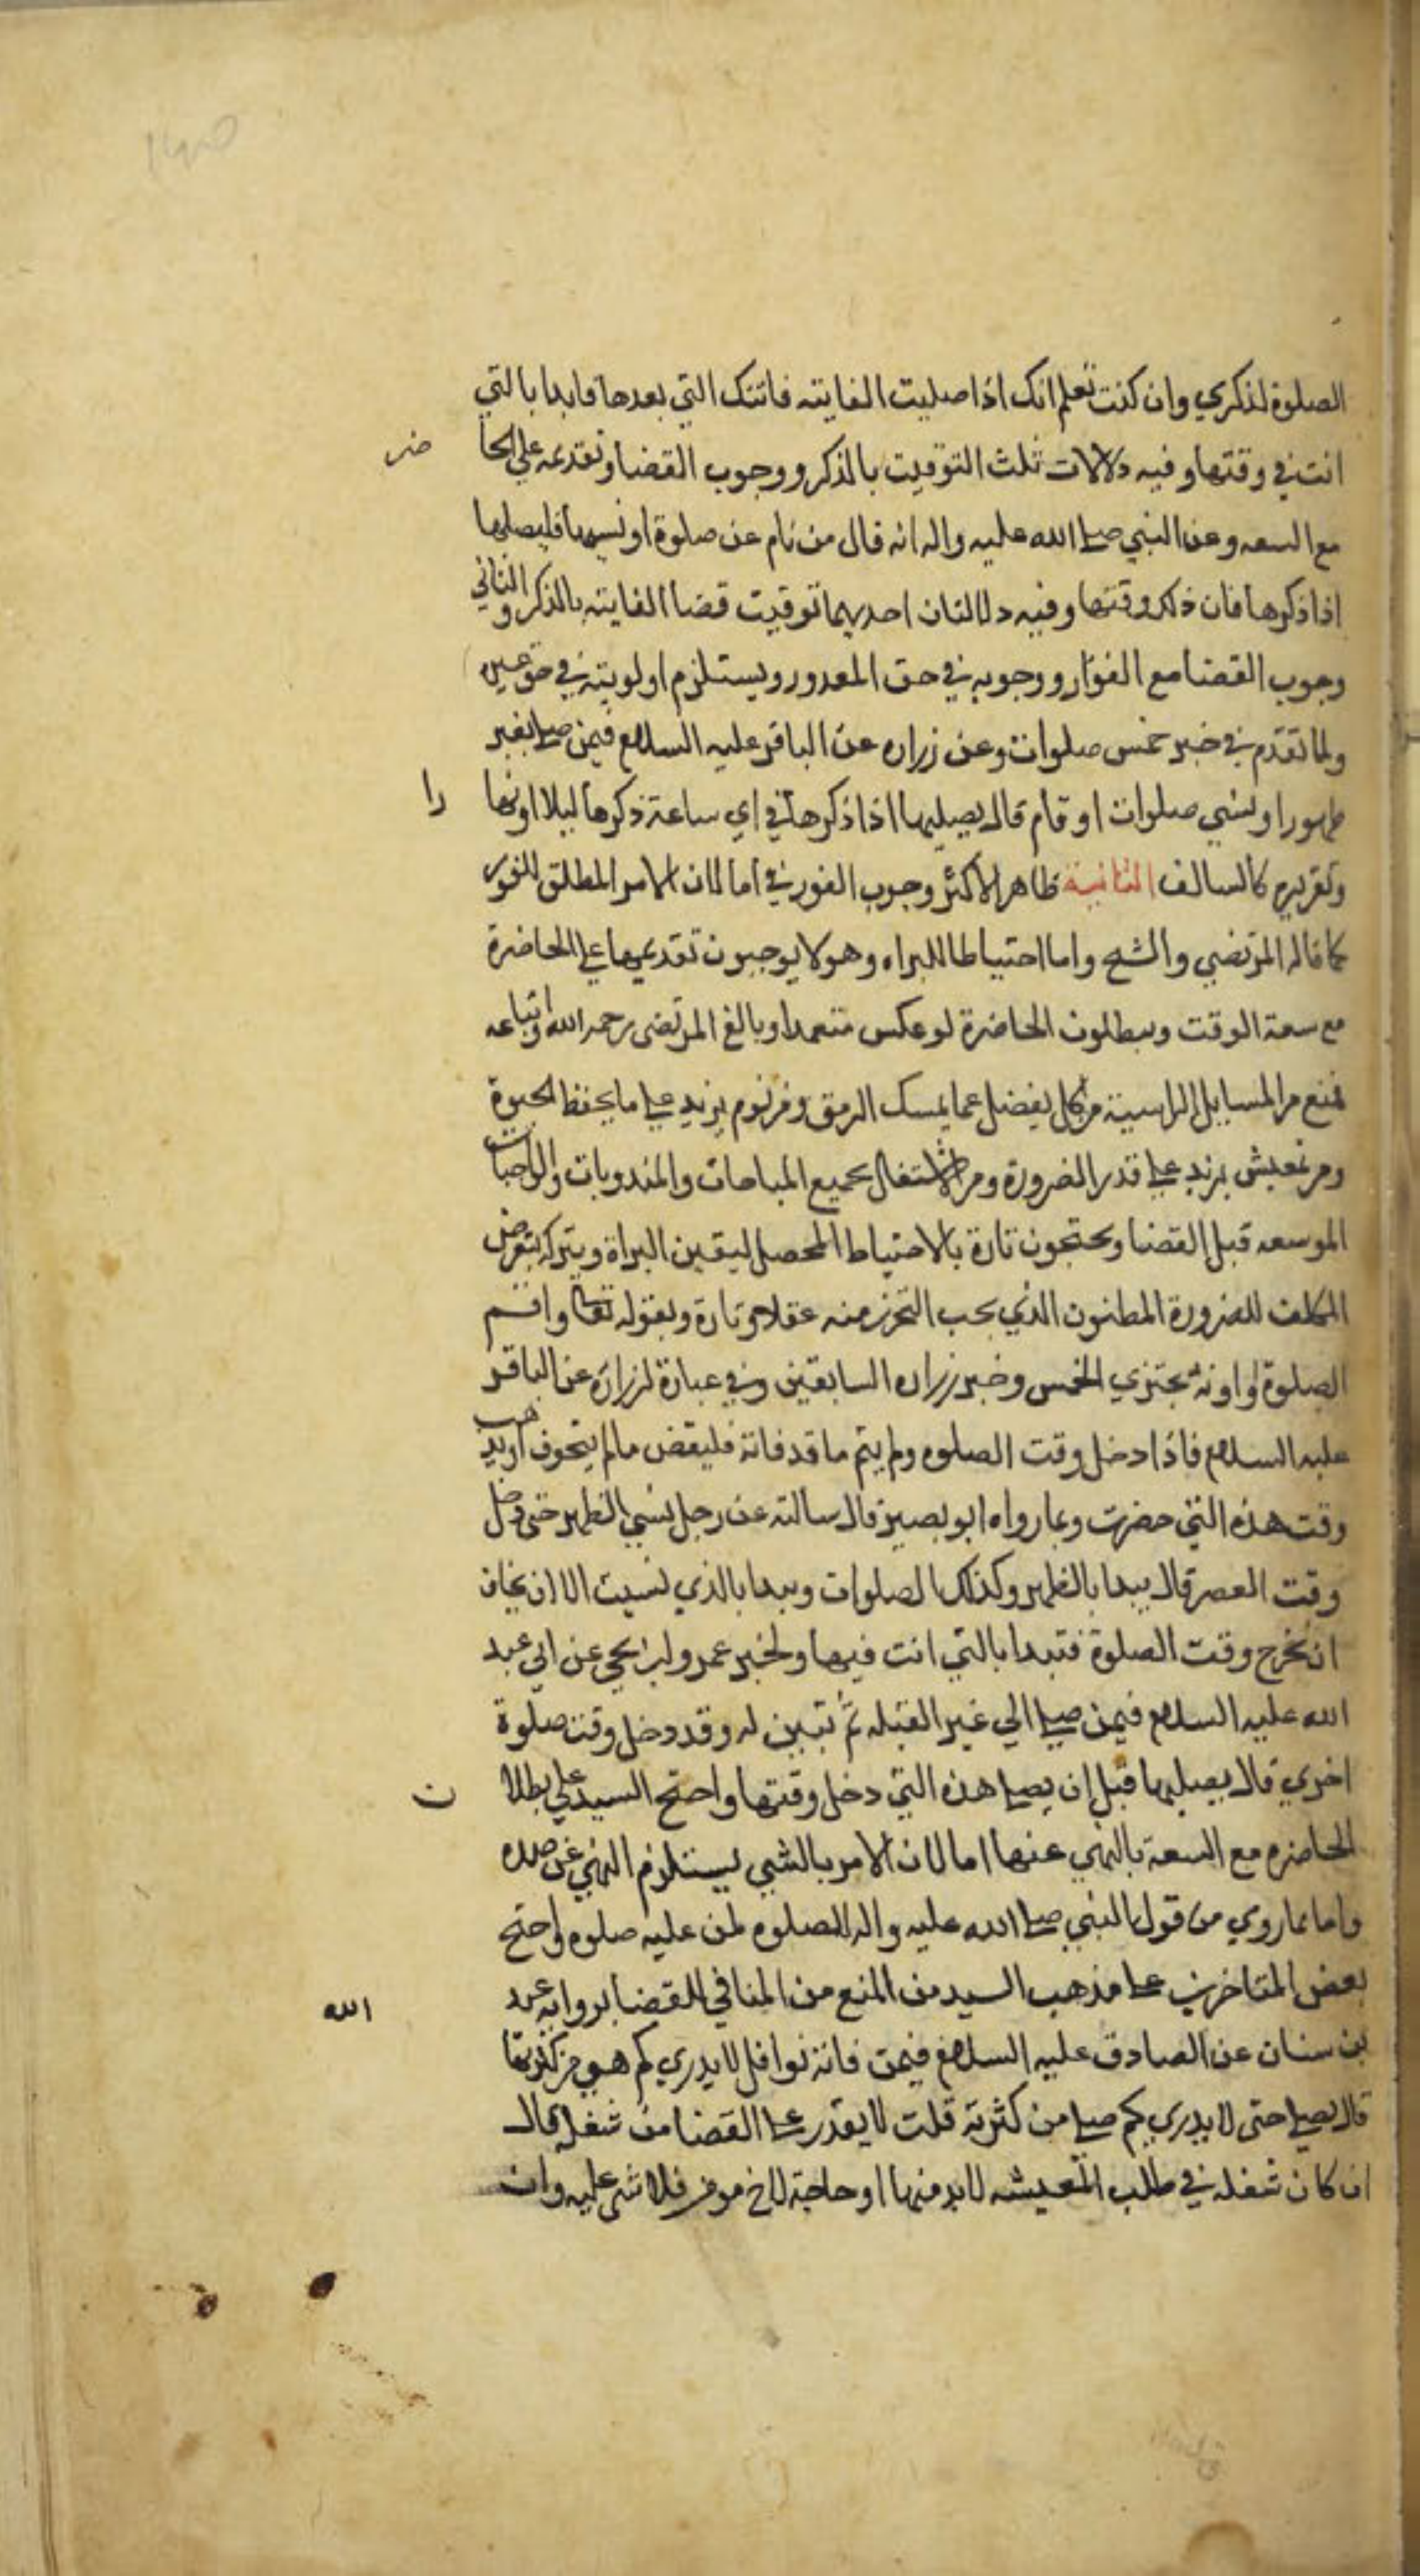 الصلوة لذكري وان كنت تعلم انك اذا صليت الفايته فاتتك التي بعدها فابدا بالتي
انت في وقتها وفيه دلالات ثلث التوقيت بالذكر ووجوب القضا وتقديمه علي الحا ضر
مع السعه وعن النبي صلى الله عليه واله انه قال من نام عن صلوة او نسيها فليصلها
اذا ذكرها فان ذلك وقتها وفيه دلالتان احديهما توقيت قضا الفايته بالذكر والثاني
وجوب القضا مع الفوار ووجوبه في حق المعدور ويستلزم اولويته في حق غيره
ولما تقدم في خبر خمس صلوات وعن زراره عن الباقر عليه السلام فيمن صلى بغير
طهور او نسي صلوات او قام قال يصليها اذا ذكرها في اي ساعة ذكرها ليلا او نها را
وتقريره كالسالف الثانية ظاهر الاكثر وجوب الفور في اما لان الامر المطلق للفور
كما قاله المرتضي والشيخ واما احتياطا للبراه وهولا يوجبون تقديمها على الحاضرة
مع سعة الوقت ويبطلون الحاضرة لو عكس متعمدا وبالغ المرتضى رحمه الله واتباعه
فمنع من المسايل الراسية من اكل يفضل عما يمسك الرمق ومن نوم يزيد على ما يحفظ الحيوة
ومن تعيش يزيد على قدر الضرورة ومن الاشتغال بجميع المباحات والمندوبات والواجبات
الموسعه قبل القضا ويحتجون تارة بالاحتياط المحصل ليقين البراة وبتركه يتعرض
المكلف للضرورة المظنون الذي يجب التحرز منه عقلا وتارة وبقوله تعالى واقم
الصلوة واونة بخبري الخمس وخبر زراره السابقين وفي عبارة لزرارة عن الباقر
عليه السلام فاذا دخل وقت الصلوه ولم يتم ما قد فاتة فليقض ما لم يتخوف ان يذهب
وقت هذه التي حضرت وبما رواه ابو بصير قال سالته عن رجل نسي الظهر حتى دخل
وقت العصر قال يبدا بالظهر وكذلك الصلوات ويبدا بالذي نسيت الا ان يخاف
ان يخرج وقت الصلوة فتبدا بالتي انت فيها ولخبر عمرو بن يحيي عن ابي عبد
الله عليه السلام فيمن صلى الي غير القبله ثم تبين له وقد دخل وقت صلوة
اخري قال يصليها قبل ان يصلي هذه التي دخل وقتها واحتج السيد علي بطلا ن
الحاضره مع السعة بالنهي عنها اما لان الامر بالشي يستلزم النهي عن ضده
واما بما روي من قول النبي صلى الله عليه واله لا صلوه لمن عليه صلوه واحتج
بعض المتاخرين على مذهب السيد من المنع من المنافي للقضا برواية عبد الله
بن سنان عن الصادق عليه السلام فيمن فاتة نوافل لا يدري كم هي من كثرتها
قال يصلي حتى لا يدري كم صلى من كثرته قلت لا يقدر على القضا من شغله قال
ان كان شغله في طلب المعيشه لا بد منها او حاجة لاخ مومن فلا شي عليه وان